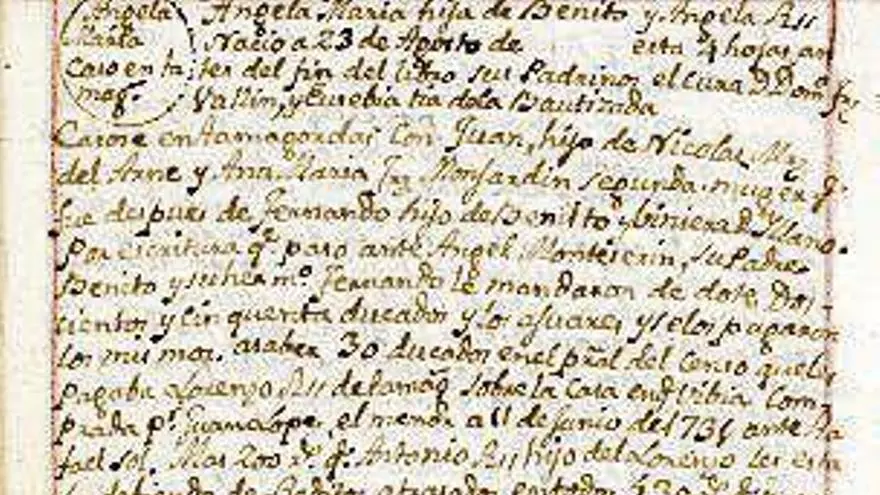 Angela
Maria
Caso en ta
mag.
Angela Maria hija de Benito y Angela
Nacio a 23 de Agosto de esta 4 hojas an
tes del fin del libro sus Padrinos el Cura D.
Vallin, y Eusebia tia de la Bautizada
Casose en tamagordas con Juan, hijo de Nicolas
del Arne y Ana Maria Monjardin segunda muger q.
fue despues de Fernando hijo de Benito
Por escritura q. paso ante Angel Monteserin, su Padre
Benito y su her m.o Fernando le mandaron de dote Dos
cientos y cinquenta ducados y los ajuares, y se los pagaron
los mismos. asaber 30 ducados en el pral del Censo que les
pagaba Lorenzo de tamag sobre la Casa en Com
prada pr. Juan Lopez, el menor a 11 de Junio de 173 ante Ra
fael sol. Mas 200 ds. q. Antonio hijo de Lorenzo les
de atrasados